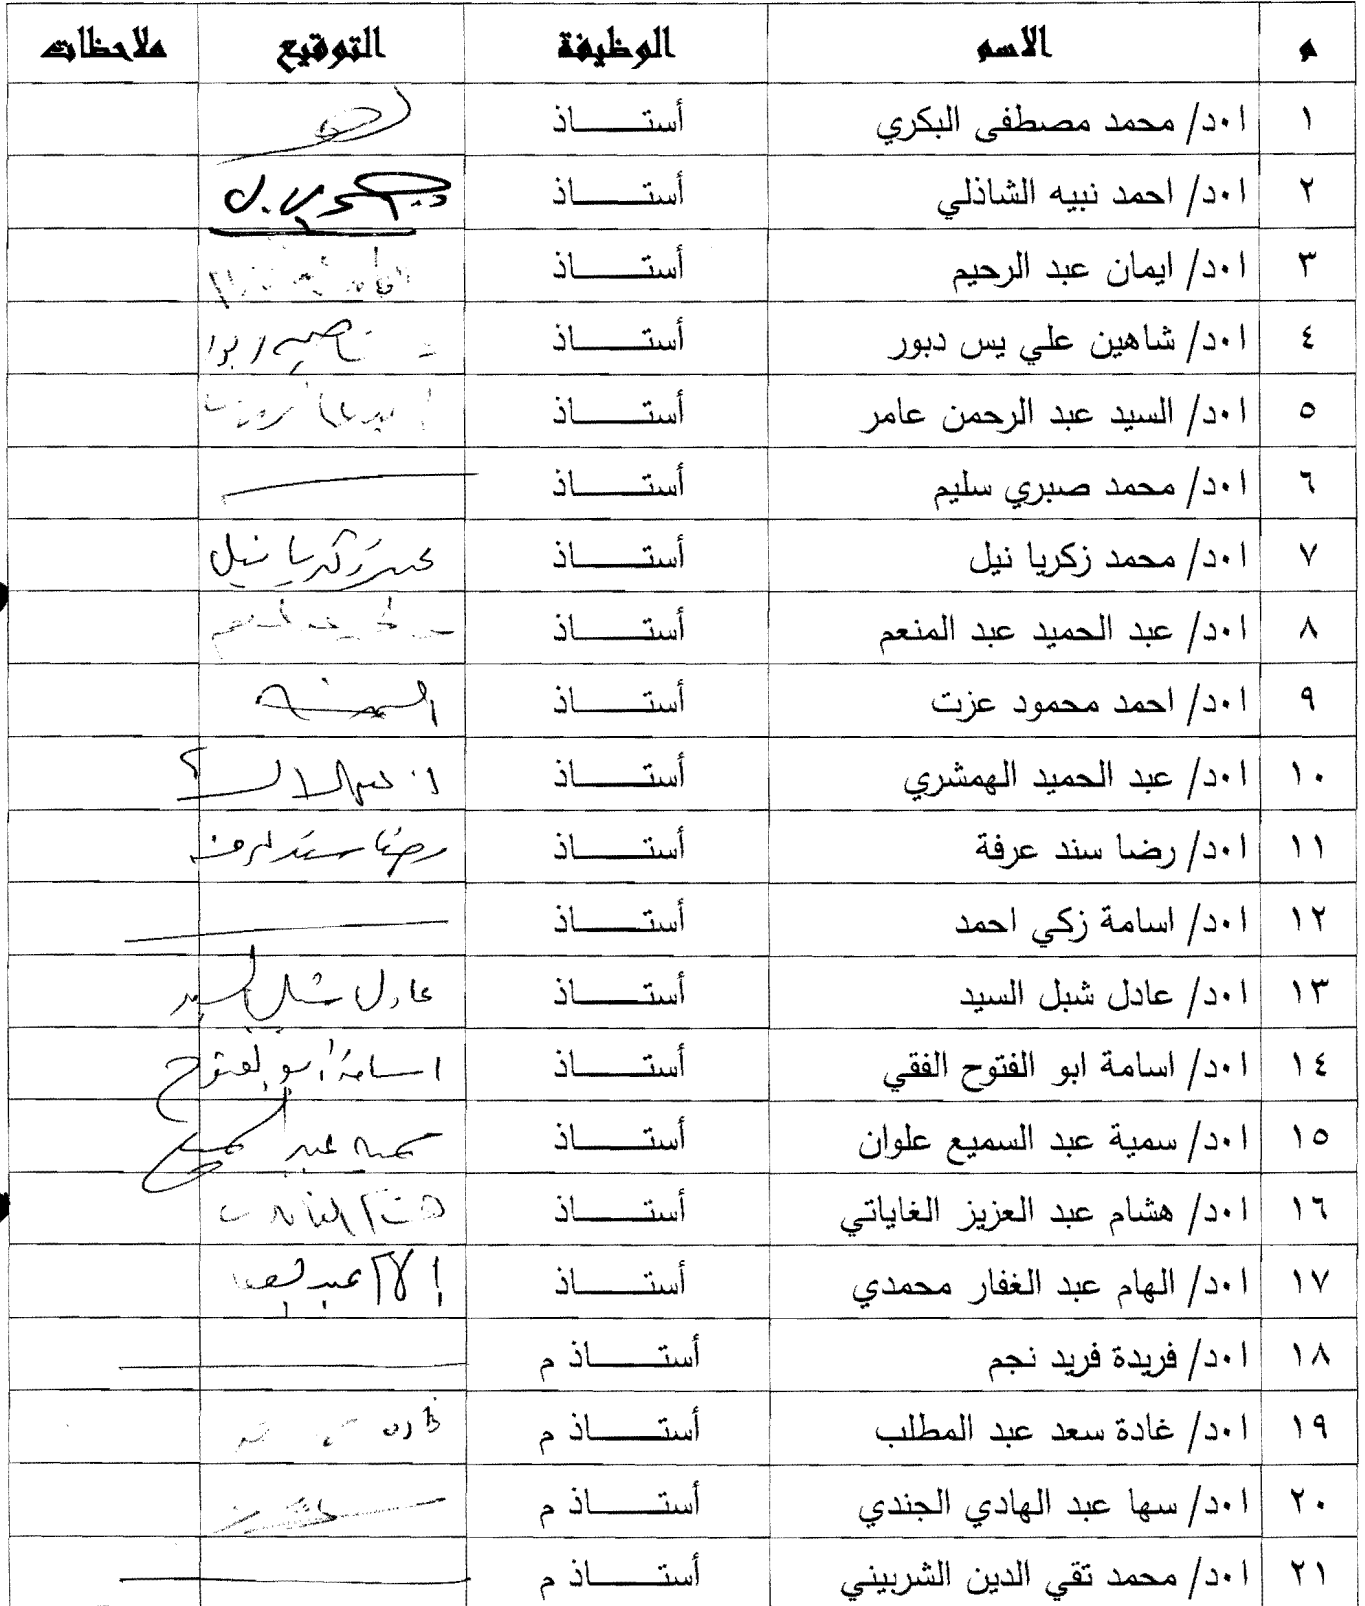 م الاسم الوظيفة التوقيع ملاحظات
١ ا٠د/ محمد مصطفى البكري أستــــاذ
٢ ا٠د/ احمد نبيه الشاذلي أستــــاذ
٣ ا٠د/ ايمان عبد الرحيم أستــــاذ
٤ ا٠د/ شاهين علي يس دبور أستــــاذ
٥ ا٠د/ السيد عبد الرحمن عامر أستــــاذ
٦ ا٠د/ محمد صبري سليم أستــــاذ
٧ ا٠د/ محمد زكريا نيل أستــــاذ محمد زكريا نيل
٨ ا٠د/ عبد الحميد عبد المنعم أستــــاذ
٩ ا٠د/ احمد محمود عزت أستــــاذ
١٠ ا٠د/ عبد الحميد الهمشري أستــــاذ
١١ ا٠د/ رضا سند عرفة أستــــاذ رضا سند عرفه
١٢ ا٠د/ اسامة زكي احمد أستــــاذ
١٣ ا٠د/ عادل شبل السيد أستــــاذ عادل شبل السيد
١٤ ا٠د/ اسامة ابو الفتوح الفقي أستــــاذ اسامة ابو الفتوح
١٥ ا٠د/ سمية عبد السميع علوان أستــــاذ سميه عبد السميع
١٦ ا٠د/ هشام عبد العزيز الغاياتي أستــــاذ هشام الغاياتى
١٧ ا٠د/ الهام عبد الغفار محمدي أستــــاذ
١٨ ا٠د/ فريدة فريد نجم أستــــاذ م
١٩ ا٠د/ غادة سعد عبد المطلب أستــــاذ م
٢٠ ا٠د/ سها عبد الهادي الجندي أستــــاذ م
٢١ ا٠د/ محمد تقي الدين الشربيني أستــــاذ م